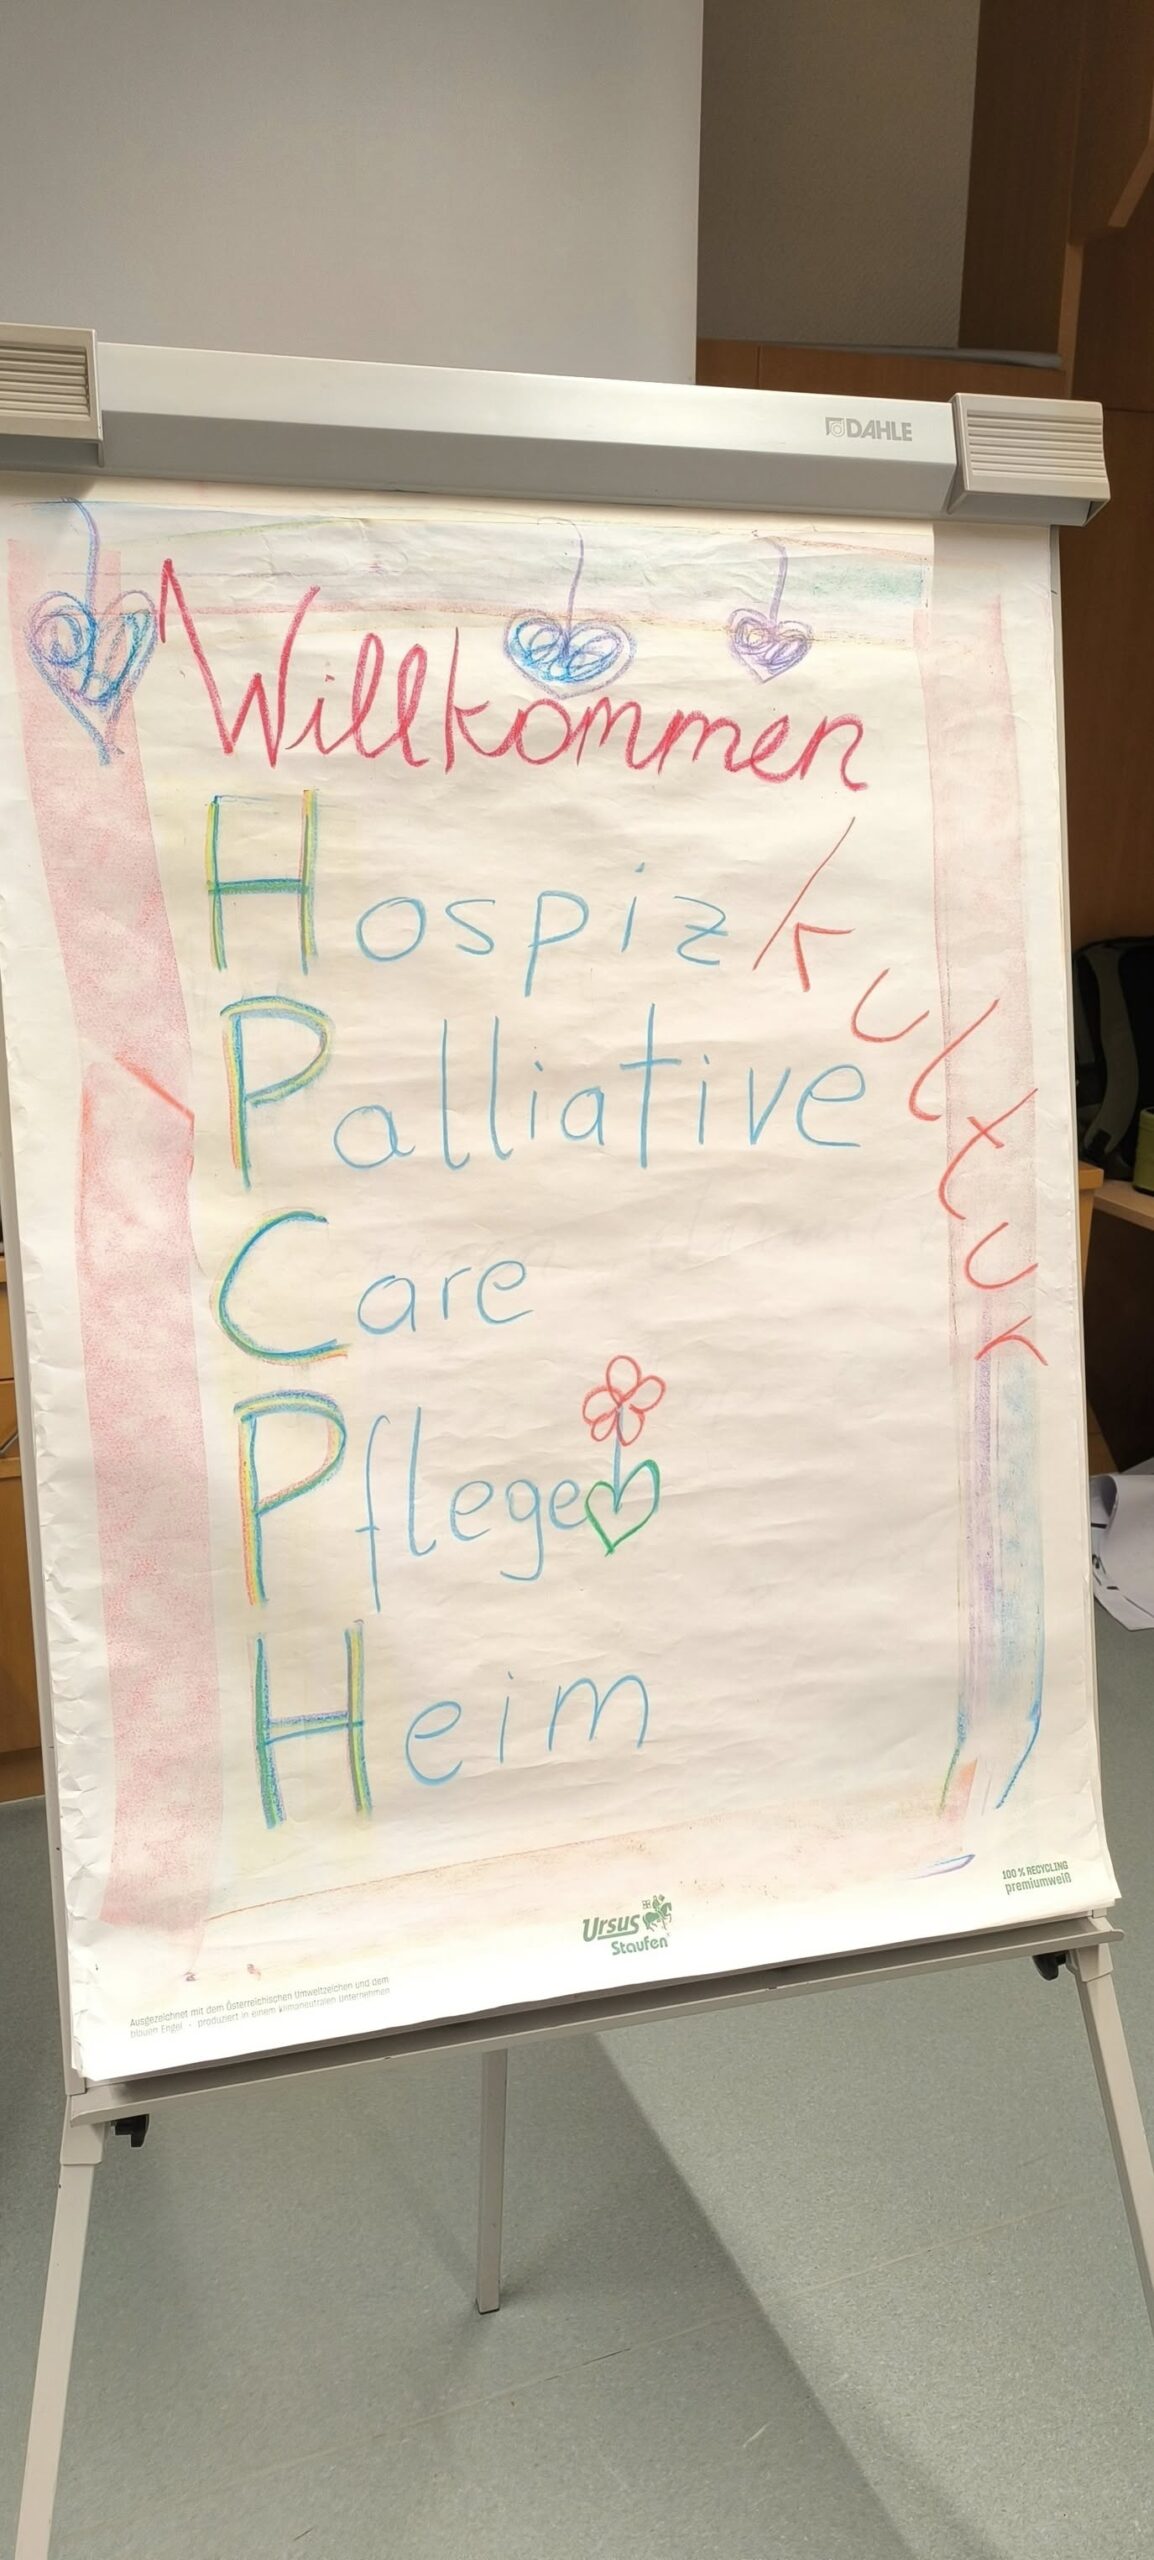 DAHLE
Willkommen
Hospizkultur
Palliative
Care
Pflege
Heim
100 % RECYCLING
premiumweiß
Ursus
Staufen
Ausgezeichnet mit dem Österreichischen Umweltzeichen und dem
blauen Engel - produziert in einem klimaneutralen Unternehmen